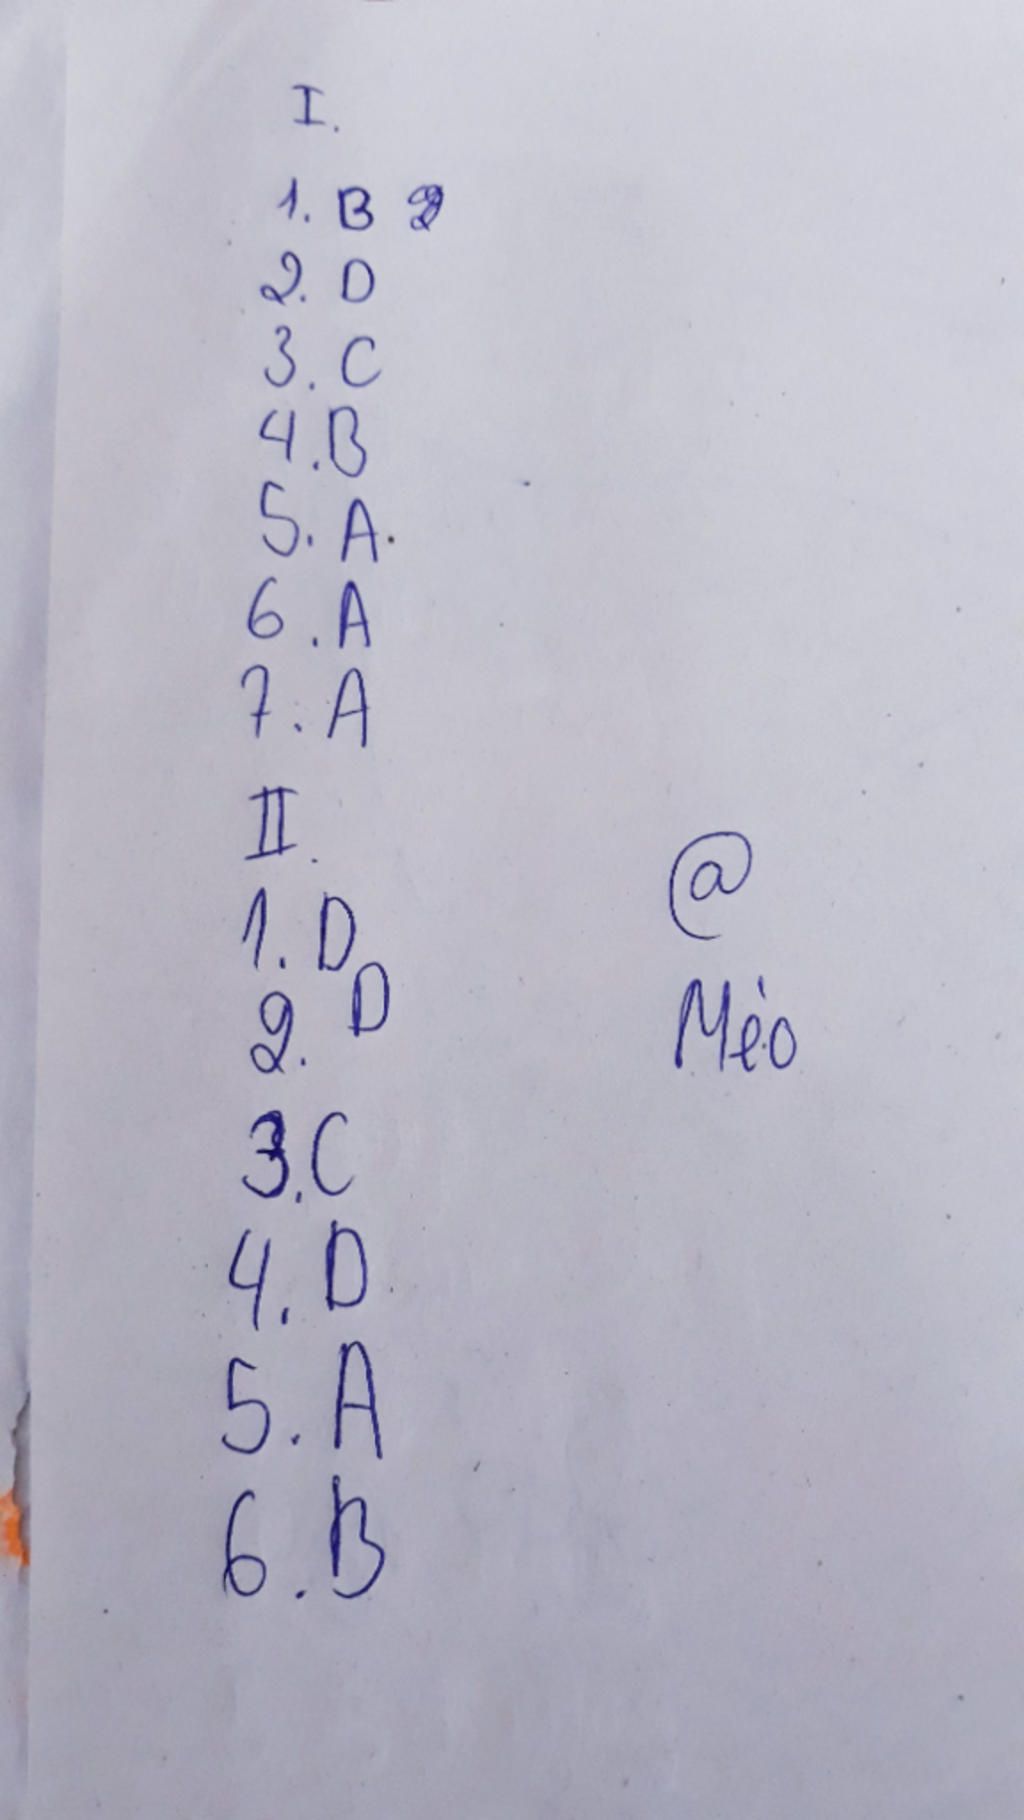 I.
1. B
2. D
3. C
4. B
5. A.
6. A
7. A
II.
1. D
2. D
3. C
4. D
5. A
6. B
@
Mèo